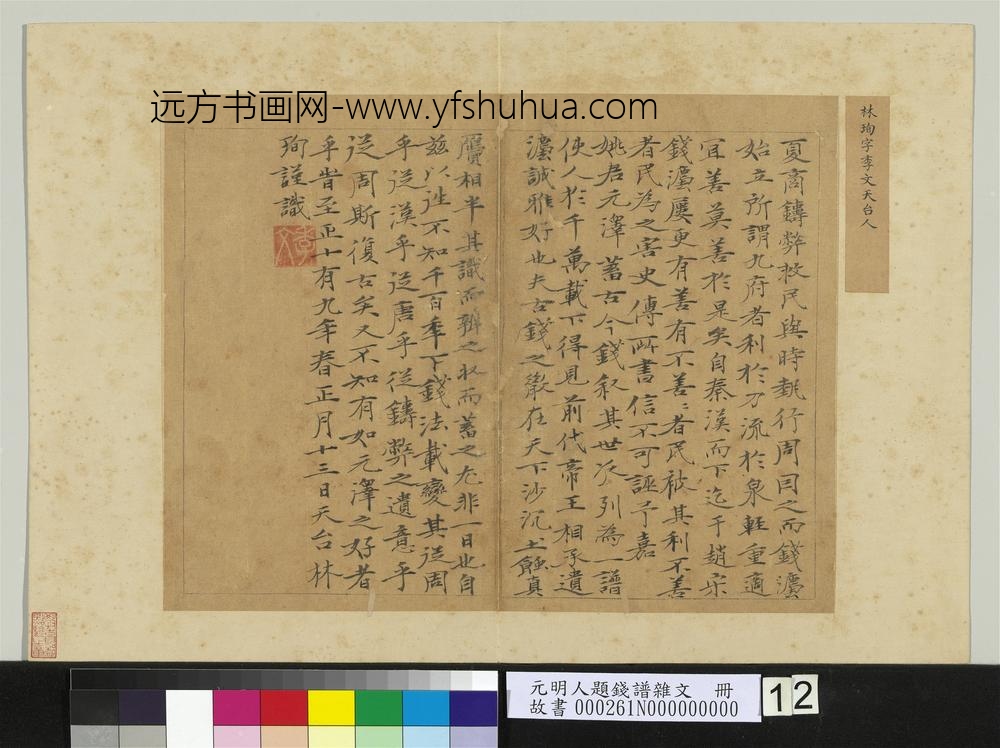 远方书画网-www.yfshuhua.com
林珣字季文天台人
夏商鑄弊救民與時執行周因之而錢灋
始立所謂九府者利於刀流於泉輕重適
宜善莫善於是矣自秦漢而下迄于趙宋
錢灋屢更有善有不善善者民被其利不善
者民為之害史傳所書信不可誣予嘉
姚君元澤蓄古今錢叙其世次列為一譜
使人於千萬載下得見前代帝王相承遺
灋誠雅好也夫古錢之散在天下沙沉土蝕真
贋相半其識而辨之收而蓄之尤非一日也自
茲以往不知千百年下錢法載變其從周
乎從漢乎從唐乎從鑄弊之遺意乎
從周斯復古矣又不知有如元澤之好者
乎旹至正十有九年春正月十三日天台林
珣謹識
季文
元明人題錢譜雜文 冊
故書 000261N000000000
12